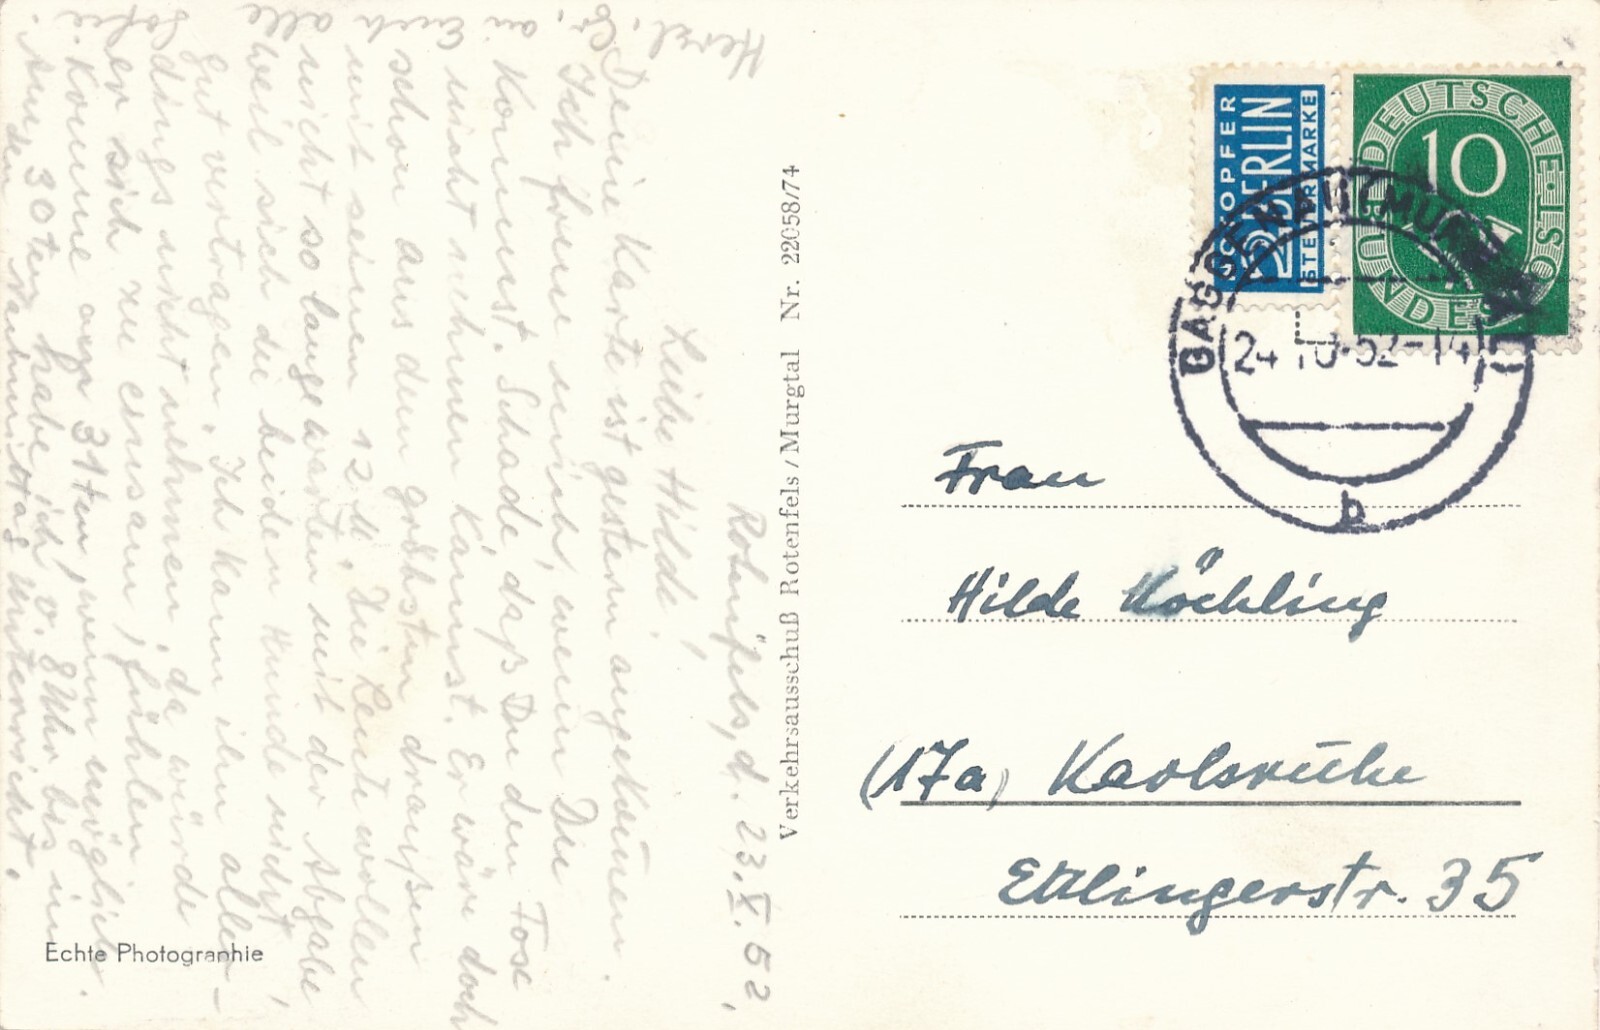 Rotenfels, d. 23. X. 52
Liebe Hilde!
Deine Karte ist gestern angekommen.
Ich freue mich, wenn Du
kommst. Schade, daß Du den Tose
nicht nehmen kannst. Er wäre doch
schon aus dem gröbsten draußen
mit seinen 12 . Die Leute wollen
nicht so lange warten mit der Abgabe
weil sich die beiden Hunde nicht
gut vertragen. Ich kann ihn aller-
dings nicht nehmen, da würde
er sich zu einsam fühlen.
Komme am 31ten, wenn möglich.
Am 30ten habe ich v. 8 Uhr bis in
den Nachmittag Unterricht.
Herzl. Gr. an Euch alle
Sofie.
Echte Photographie
Verkehrsausschuß Rotenfels/Murgtal Nr. 22058/74
NOTOPFER
2 BERLIN
STEUERMARKE
DEUTSCHE BUNDESPOST
10
GAGGENAU (MURGTAL)
24.10.52-14
b
Frau
Hilde Köchling
(17a) Karlsruhe
Ettlingerstr. 35